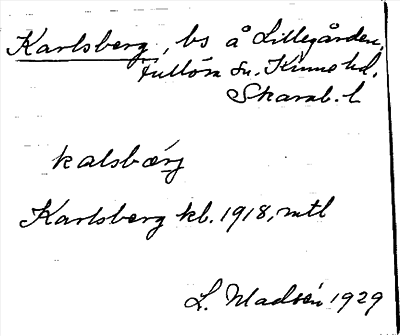 Karlsberg, bs å Lillegården,
Fullösa sn. Kinne hd.
Skarab. l.
kalsbærj
Karlsberg kb. 1918, mtl
L. Madsén 1929